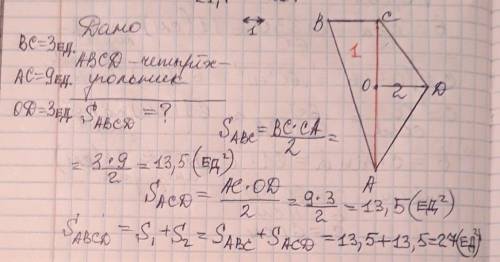 Дано
BC=3ед.
ABCD-четырёх-
AC=9ед. угольник
OD=3ед. S_ABCD = ?
S_ABC = BC·CA/2 =
= 3·9/2 = 13,5 (ЕД²)
S_ACD = AC·OD/2 = 9·3/2 = 13,5 (ЕД²)
S_ABCD = S₁+S₂ = S_ABC + S_ACD = 13,5+13,5=27(ЕД²)
1
B
C
1
O
2
D
A